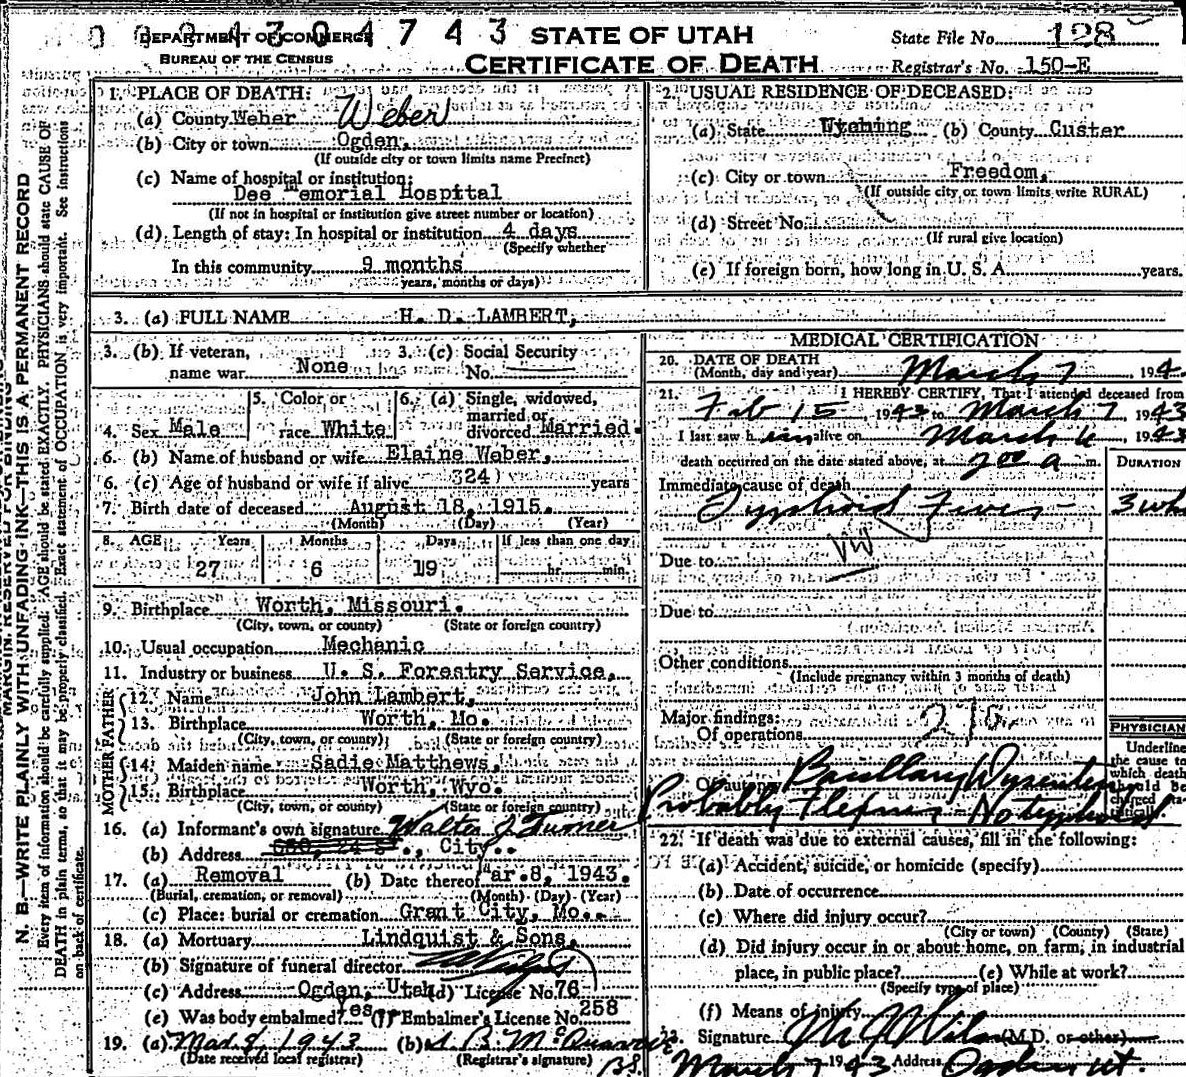 0 0 2 4 3 0 4 7 4 3
DEPARTMENT OF COMMERCE
BUREAU OF THE CENSUS
STATE OF UTAH
CERTIFICATE OF DEATH
State File No. 128
Registrar's No. 150-E
MARGIN RESERVED FOR BINDING
N. B.—WRITE PLAINLY WITH UNFADING INK—THIS IS A PERMANENT RECORD
Every item of information should be carefully supplied. AGE should be stated EXACTLY. PHYSICIANS should state CAUSE OF
DEATH in plain terms, so that it may be properly classified. Exact statement of OCCUPATION is very important. See instructions
on back of certificate.
1. PLACE OF DEATH:
(a) County Weber Weber
(b) City or town Ogden,
(If outside city or town limits name Precinct)
(c) Name of hospital or institution:
Dee Memorial Hospital
(If not in hospital or institution give street number or location)
(d) Length of stay: In hospital or institution 4 days
(Specify whether
In this community 9 months
years, months or days)
2. USUAL RESIDENCE OF DECEASED:
(a) State Wyoming (b) County Custer
(c) City or town Freedom,
(If outside city or town limits write RURAL)
(d) Street No.
(If rural give location)
(e) If foreign born, how long in U. S. A. years.
3. (a) FULL NAME H. D. LAMBERT,
3. (b) If veteran, name war None 3. (c) Social Security No.
4. Sex Male 5. Color or race White 6. (a) Single, widowed, married or divorced Married.
6. (b) Name of husband or wife Elaine Weber,
6. (c) Age of husband or wife if alive 324) years
7. Birth date of deceased August 18, 1915.
(Month) (Day) (Year)
8. AGE Years Months Days If less than one day
27 6 19 hr. min.
9. Birthplace Worth, Missouri.
(City, town, or county) (State or foreign country)
10. Usual occupation Mechanic
11. Industry or business U. S. Forestry Service,
FATHER
12. Name John Lambert,
13. Birthplace Worth, Mo.
(City, town, or county) (State or foreign country)
MOTHER
14. Maiden name Sadie Matthews,
15. Birthplace Worth, Wyo.
(City, town, or county) (State or foreign country)
16. (a) Informant's own signature Walter J. Turner
(b) Address City.
17. (a) Removal (b) Date thereof Mar. 8, 1943.
(Burial, cremation, or removal) (Month) (Day) (Year)
(c) Place: burial or cremation Grant City, Mo..
18. (a) Mortuary Lindquist & Sons,
(b) Signature of funeral director
(c) Address Ogden, Utah (d) License No. 76
(e) Was body embalmed? Yes (f) Embalmer's License No. 258
19. (a) Mar 8, 1943 (b)
(Date received local registrar) (Registrar's signature)
MEDICAL CERTIFICATION
20. DATE OF DEATH
(Month, day and year) March 7, 194
21. I HEREBY CERTIFY, That I attended deceased from
Feb 15, 1943 to March 7, 1943
I last saw him alive on March 6, 1943
death occurred on the date stated above, at 7 00 a m. DURATION
Immediate cause of death
Typhoid Fever 3 wks
Due to
Due to
Other conditions
(Include pregnancy within 3 months of death)
Major findings:
Of operations
PHYSICIAN
Underline the cause to which death should be charged
Bacillary Dysentery
Probably Flexner Not typhoid.
22. If death was due to external causes, fill in the following:
(a) Accident, suicide, or homicide (specify)
(b) Date of occurrence
(c) Where did injury occur?
(City or town) (County) (State)
(d) Did injury occur in or about home, on farm, in industrial
place, in public place? (e) While at work?
(Specify type of place)
(f) Means of injury
Signature (M.D. or other)
March 7 1943 Address Ogden Ut.